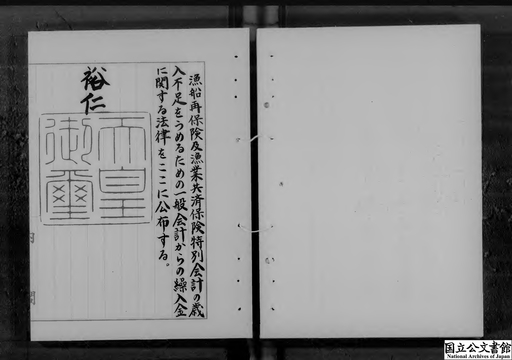 漁船再保険及漁業共済保険特別会計の歳
入不足をうめるための一般会計からの繰入金
に関する法律をここに公布する。
裕仁
天皇
御璽
国立公文書館
National Archives of Japan